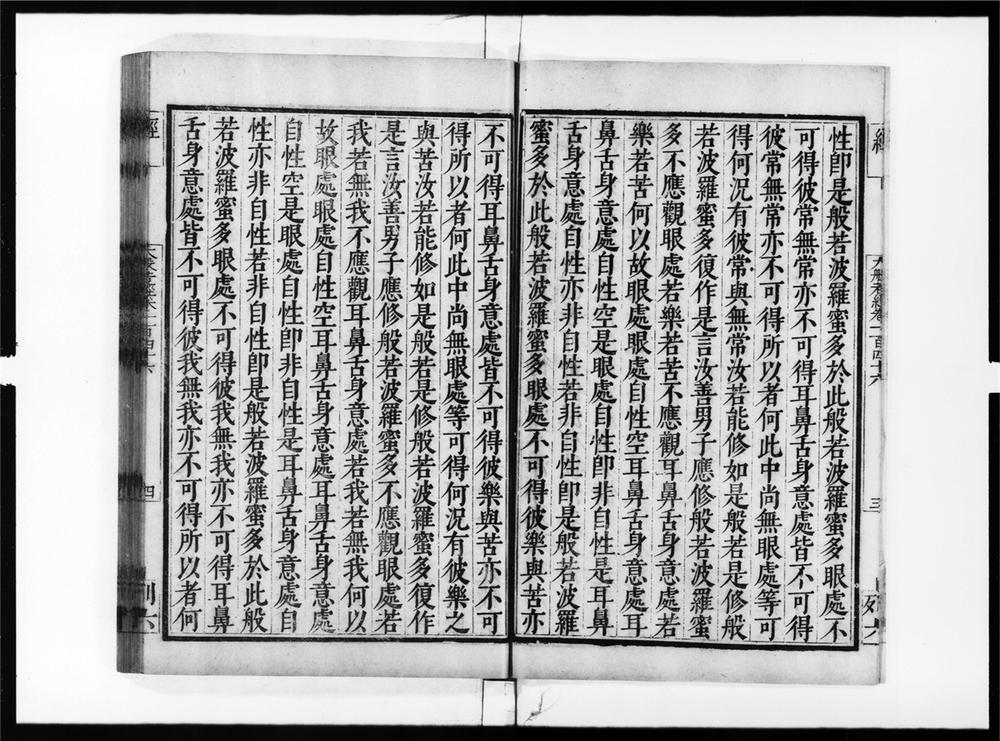 經
大般若經卷一百四十六
三
列六
性卽是般若波羅蜜多於此般若波羅蜜多眼處不
可得彼常無常亦不可得耳鼻舌身意處皆不可得
彼常無常亦不可得所以者何此中尚無眼處等可
得何況有彼常與無常汝若能修如是般若是修般
若波羅蜜多復作是言汝善男子應修般若波羅蜜
多不應觀眼處若樂若苦不應觀耳鼻舌身意處若
樂若苦何以故眼處眼處自性空耳鼻舌身意處耳
鼻舌身意處自性空是眼處自性卽非自性是耳鼻
舌身意處自性亦非自性若非自性卽是般若波羅
蜜多於此般若波羅蜜多眼處不可得彼樂與苦亦
不可得耳鼻舌身意處皆不可得彼樂與苦亦不可
得所以者何此中尚無眼處等可得何況有彼樂之
與苦汝若能修如是般若是修般若波羅蜜多復作
是言汝善男子應修般若波羅蜜多不應觀眼處若
我若無我不應觀耳鼻舌身意處若我若無我何以
故眼處眼處自性空耳鼻舌身意處耳鼻舌身意處
自性空是眼處自性卽非自性是耳鼻舌身意處自
性亦非自性若非自性卽是般若波羅蜜多於此般
若波羅蜜多眼處不可得彼我無我亦不可得耳鼻
舌身意處皆不可得彼我無我亦不可得所以者何
經
四